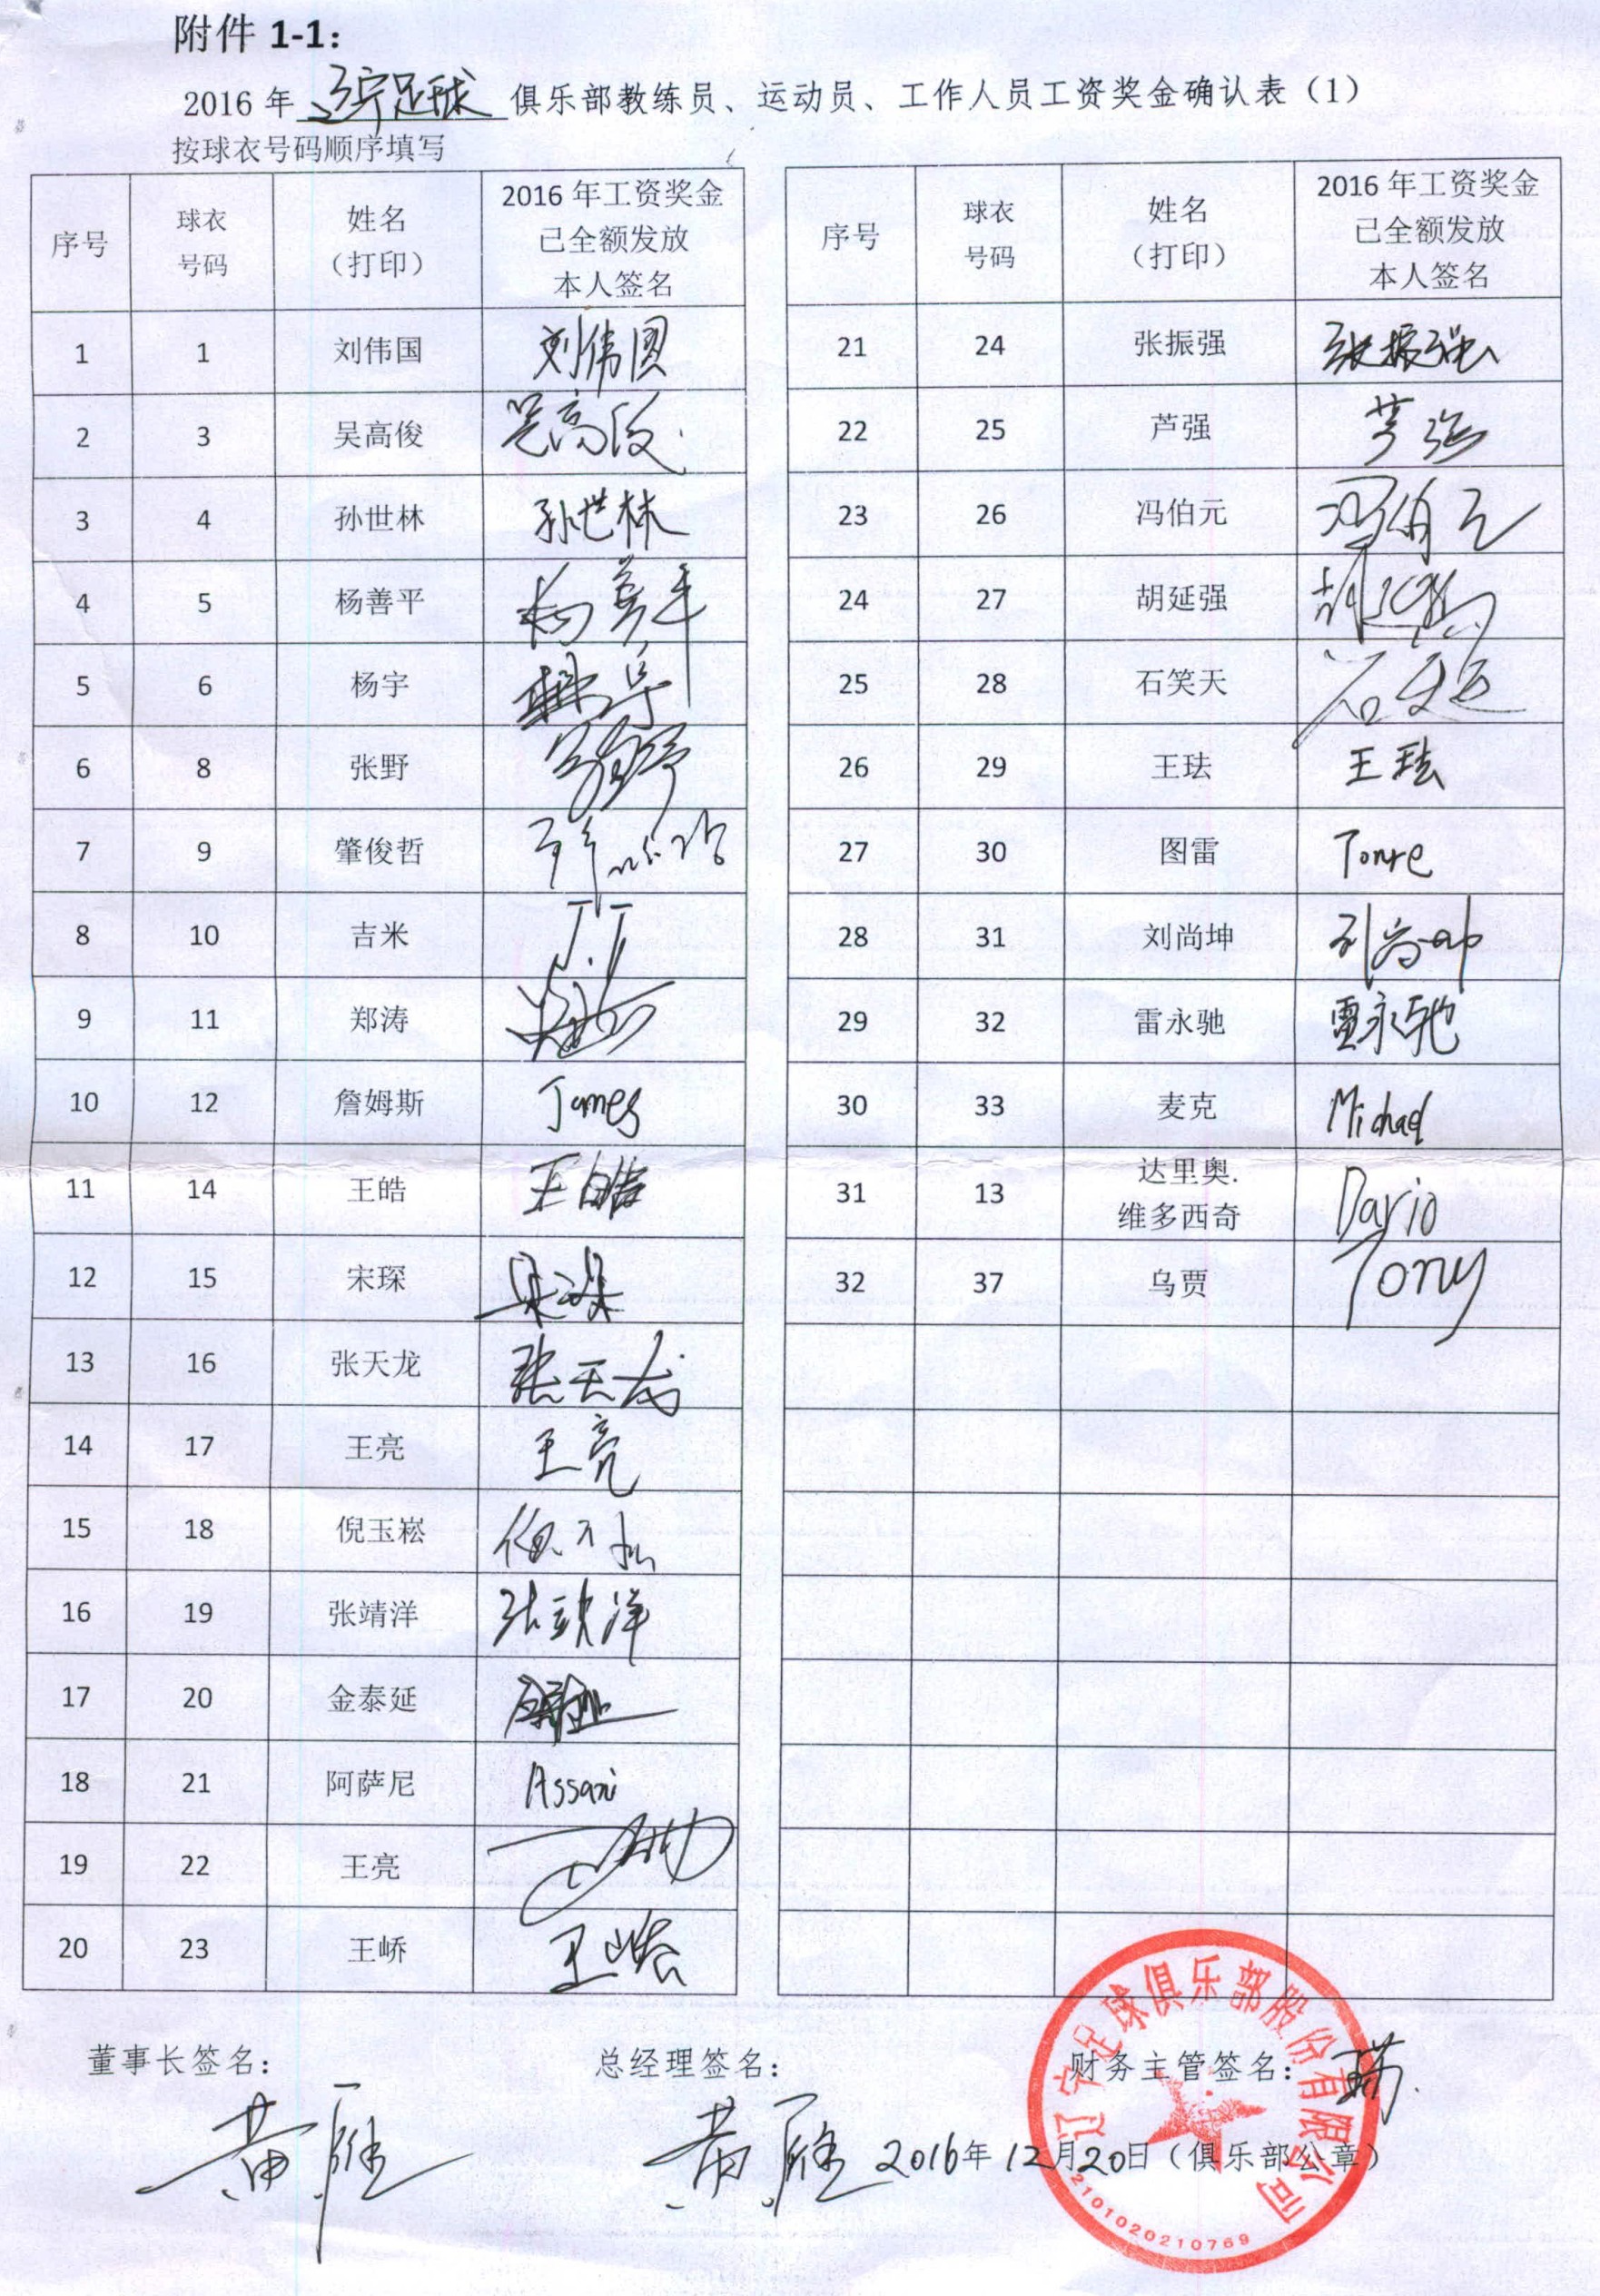 附件 1-1：
2016 年 辽宁足球 俱乐部教练员、运动员、工作人员工资奖金确认表（1）
按球衣号码顺序填写
序号 球衣号码 姓名（打印） 2016 年工资奖金已全额发放本人签名
1 1 刘伟国 刘伟国
2 3 吴高俊 吴高俊
3 4 孙世林 孙世林
4 5 杨善平 杨善平
5 6 杨宇
6 8 张野
7 9 肇俊哲
8 10 吉米
9 11 郑涛
10 12 詹姆斯 James
11 14 王皓 王皓
12 15 宋琛 宋琛
13 16 张天龙 张天龙
14 17 王亮 王亮
15 18 倪玉崧
16 19 张靖洋
17 20 金泰延
18 21 阿萨尼 Assani
19 22 王亮
20 23 王峤 王峤
序号 球衣号码 姓名（打印） 2016 年工资奖金已全额发放本人签名
21 24 张振强 张振强
22 25 芦强 芦强
23 26 冯伯元 冯伯元
24 27 胡延强 胡延强
25 28 石笑天 石笑天
26 29 王珐 王珐
27 30 图雷
28 31 刘尚坤 刘尚坤
29 32 雷永驰 雷永驰
30 33 麦克 Michael
31 13 达里奥.维多西奇 Dario
32 37 乌贾 Tony
董事长签名： 总经理签名： 财务主管签名：
黄雁 黄雁 2016年12月20日（俱乐部公章）
辽宁足球俱乐部股份有限公司
2101020210769